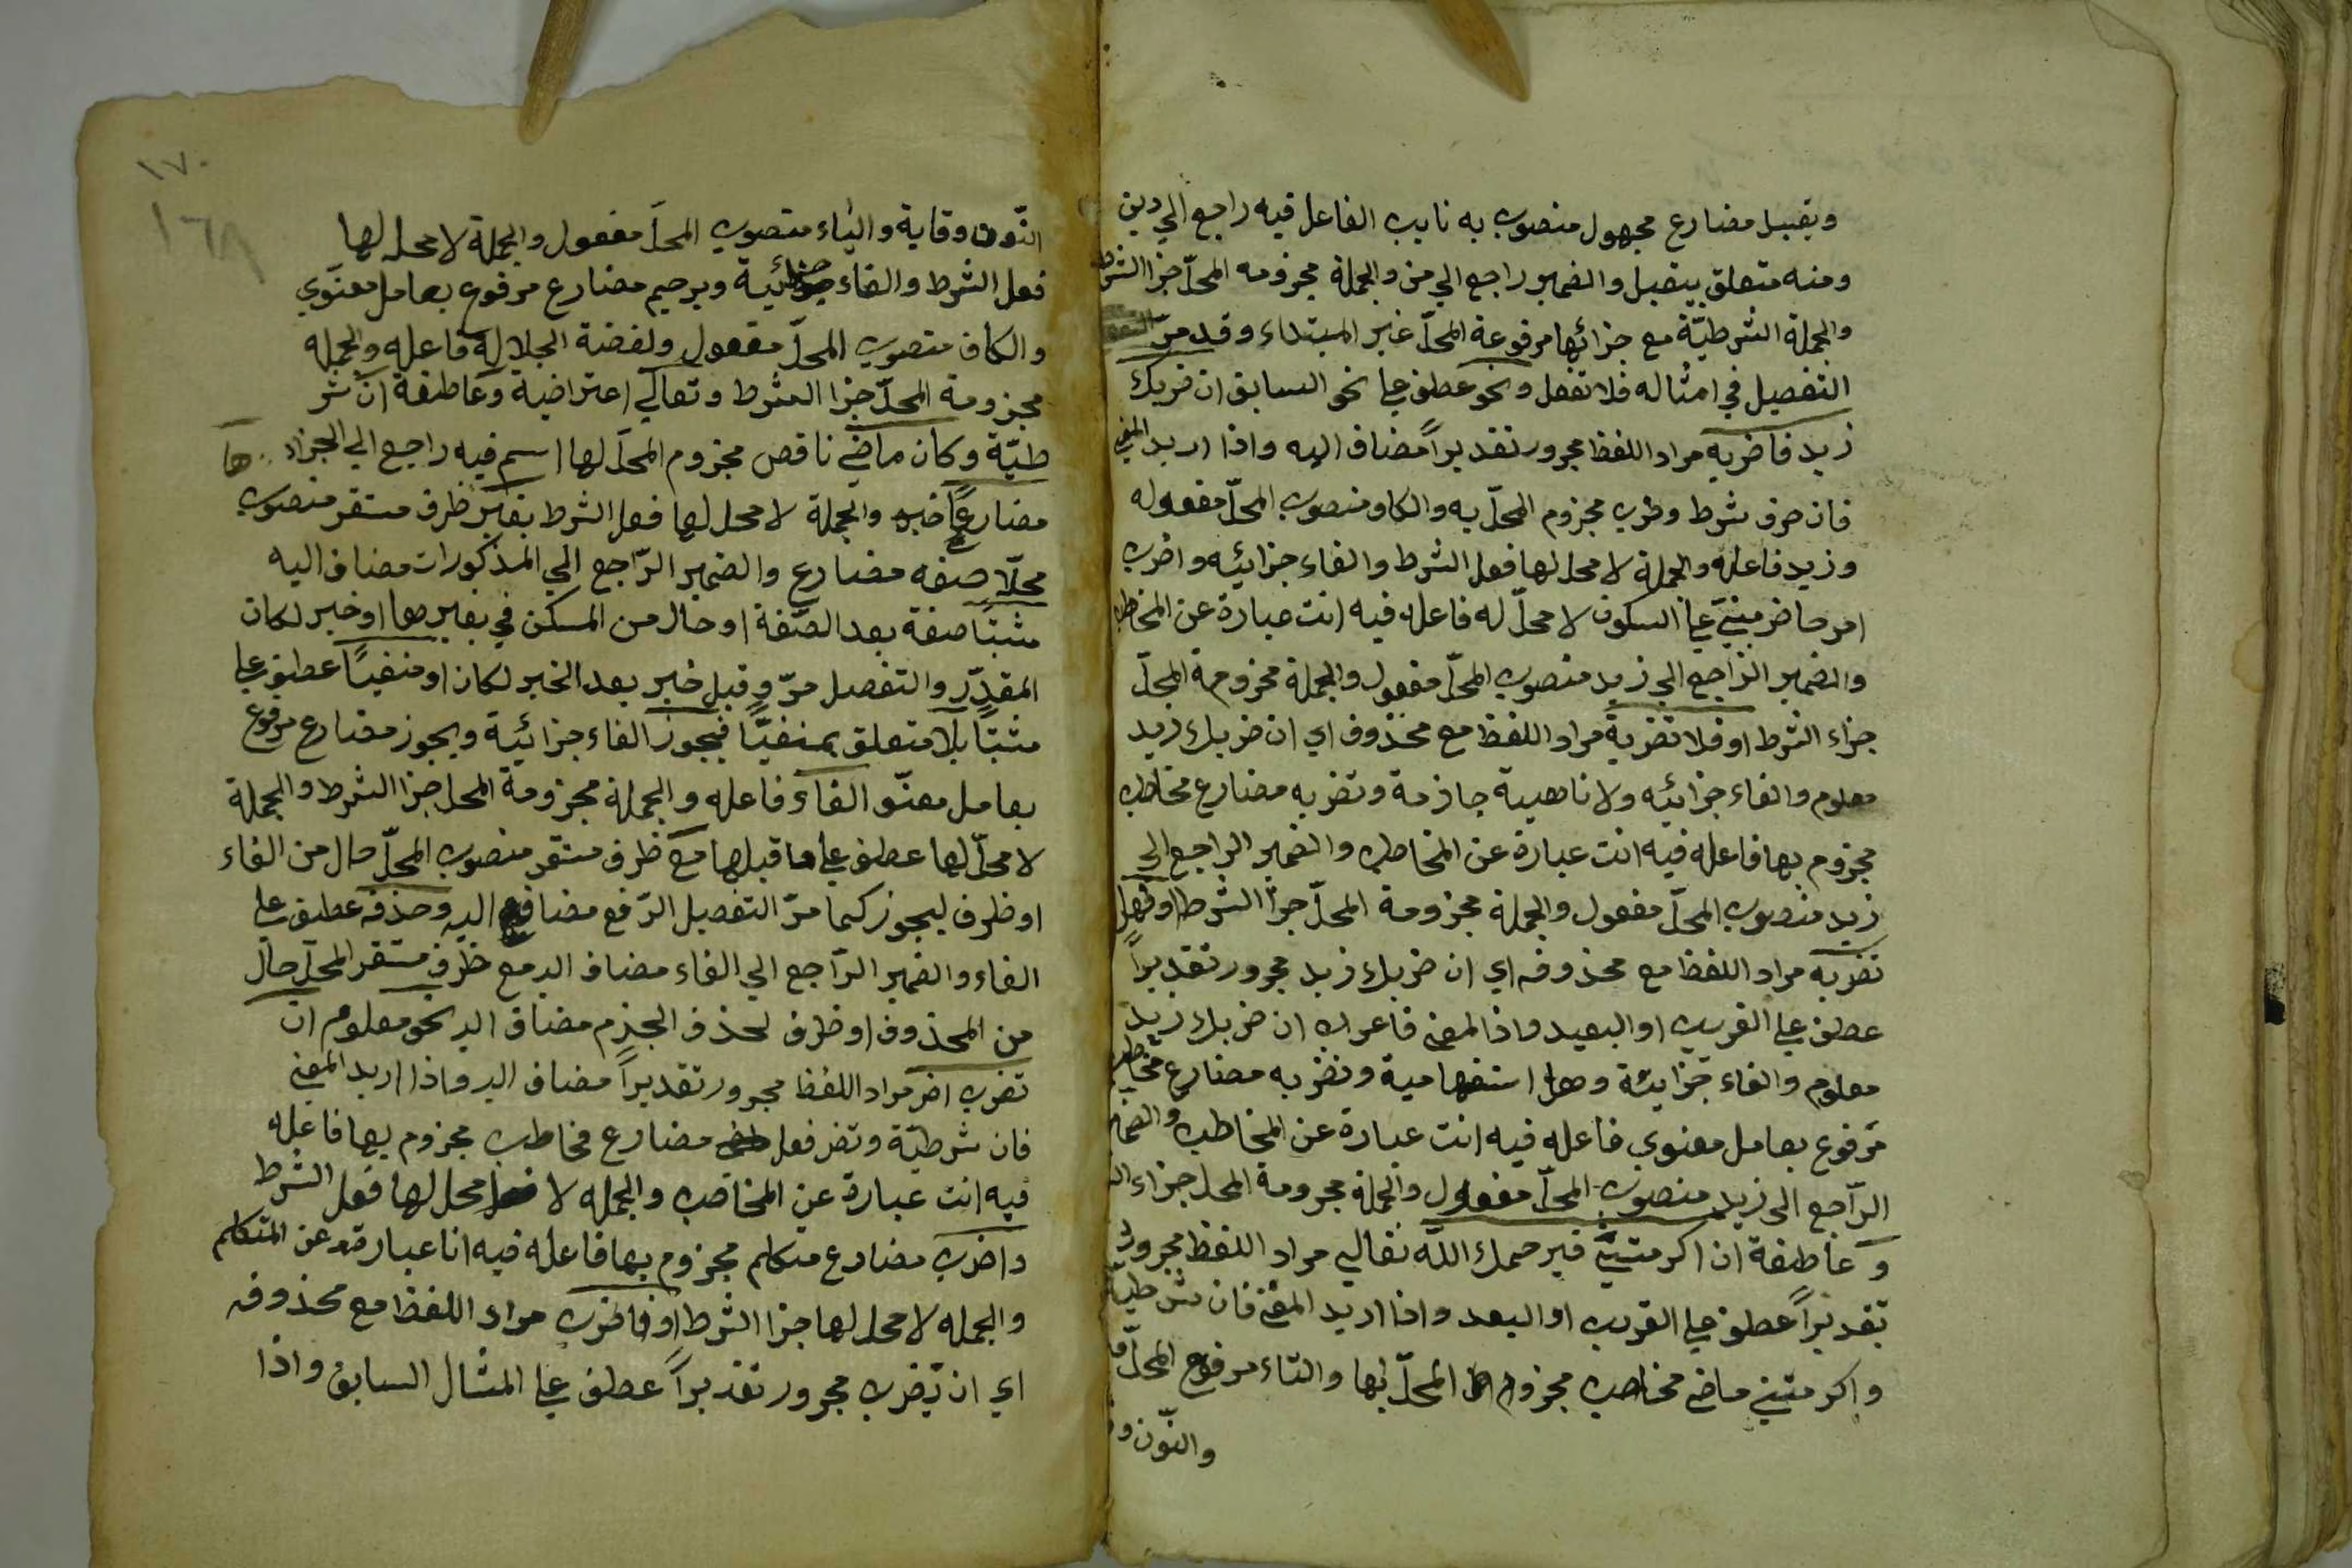 ويقبل مضارع مجهول منصوب به نايب الفاعل فيه راجع الي دين
ومنه متعلق بيقبل والضمير راجع الي من والجملة مجزومه المحلّ جزا الشرط
والجملة الشرطيّة مع جزائها مرفوعة المحلّ خبر المبتداء وقد مرّ
التفصيل في امثاله فلا تفعل ونحو عطف علي نحو السابق ان ضربك
زيد فاضربه مراد اللفظ مجرور تقديراً مضاف اليه واذا اريد المعني
فان حرف شرط وضرب مجزوم المحلّ به والكاف منصوب المحلّ مفعوله
وزيد فاعله والجملة لا محل لها فعل الشرط والفاء جزائيه واضرب
امر حاضر مبنيّ علي السكون لا محلّ له فاعله فيه انت عبارة عن المخاطب
والضمير الراجع الي زيد منصوب المحلّ مفعول والجملة مجزومة المحلّ
جزاء الشرط او فلا تضربه مراد اللفظ مع محذوف اي ان ضربك زيد
معلوم والفاء جزائيه ولا ناهيية جازمة وتضربه مضارع مخاطب
مجزوم بها فاعله فيه انت عبارة عن المخاطب والضمير الراجع الي
زيد منصوب المحلّ مفعول والجملة مجزومة المحلّ جزا الشرط او فهل
تضربه مراد اللفظ مع محذوفه اي ان ضربك زيد مجرور تقديراً
عطف علي القريب او البعيد واذا المعني فاعراب ان ضربك زيد
معلوم والفاء جزايئة وهل استفهامية وتضربه مضارع مخاطب
مرفوع بعامل معنوي فاعله فيه انت عبارة عن المخاطب والضما
الرّاجع الي زيد منصوب المحلّ مفعول والجملة مجرومة المحل جزاء
وعاطفة ان اكرمتنيّ فيرحمك اللّه تعالي مراد اللفظ مجرور
تقديراً عطف علي القريب او البعد واذا اريد المعني فان شرطية
واكرمتني ماضي مخاطب مجزوم المحلّ بها والتاء مرفوع المحلّ
والنّون و
١٧٠
١٦٨
النّون وقاية والياء منصوب المحلّ مفعول والجملة لا محل لها
فعل الشرط والفاء جزائيّة ويرحم مضارع مرفوع بعامل معنوي
والكاف منصوب المحلّ مفعول ولفضة الجلالة فاعله والجمله
مجزومة المحلّ جزا الشرط وتعالي اعتراضية وعاطفة ان شر
طيّة وكان ماضي ناقص مجزوم المحلّ لها اسم فيه راجع الي الجزاء
مضارعاً خبره والجملة لا محل لها فعل الشرط بغير ظرف مستقر منصوب
محلّا صفه مضارع والضمير الرّاجع الي المذكورات مضاف اليه
مثبتا صفة بعد الصّفة او حال من المسكن في بغيرها او خبر لكان
المقدّر والتفصيل مرّ وقيل خبر بعد الخبر لكان او منفيّاً عطف علي
مثبتاً بلا متعلق بمنفيّاً فيجوز الفاء جزائيّة ويجوز مضارع مرفوع
بعامل معنّو الفاء فاعله والجملة مجزومة المحل جزا الشرط والجملة
لا محلّ لها عطف علي ما قبلها مع ظرف مستقر منصوب المحلّ حال من الفاء
او ظرف ليجوز كما مرّ التفصيل الرّفع مضاف اليه وحذفه عطف علي
الفاء والضمير الرّاجع الي الفاء مضاف اليه مع ظرف مستقر المحلّ حال
من المحذوف او ظرف لحذف الجزم مضاف اليه نحو معلوم ان
تضرب اضر مراد اللفظ مجرور تقديراً مضاف اليه واذا اريد المعني
فان شرطيّة وتضر فعل مضارع مخاطب مجزوم بها فاعله
فيه انت عبارة عن المخاصب والجمله لا محل لها فعل الشرط
واضرب مضارع متكلم مجزوم بها فاعله فيه انا عبارة عن المتكلم
والجمله لا محل لها جزا الشرط او فاضرب مراد اللفظ مع محذوفه
اي ان تضرب مجرور تقديراً عطف علي المثال السابق واذا